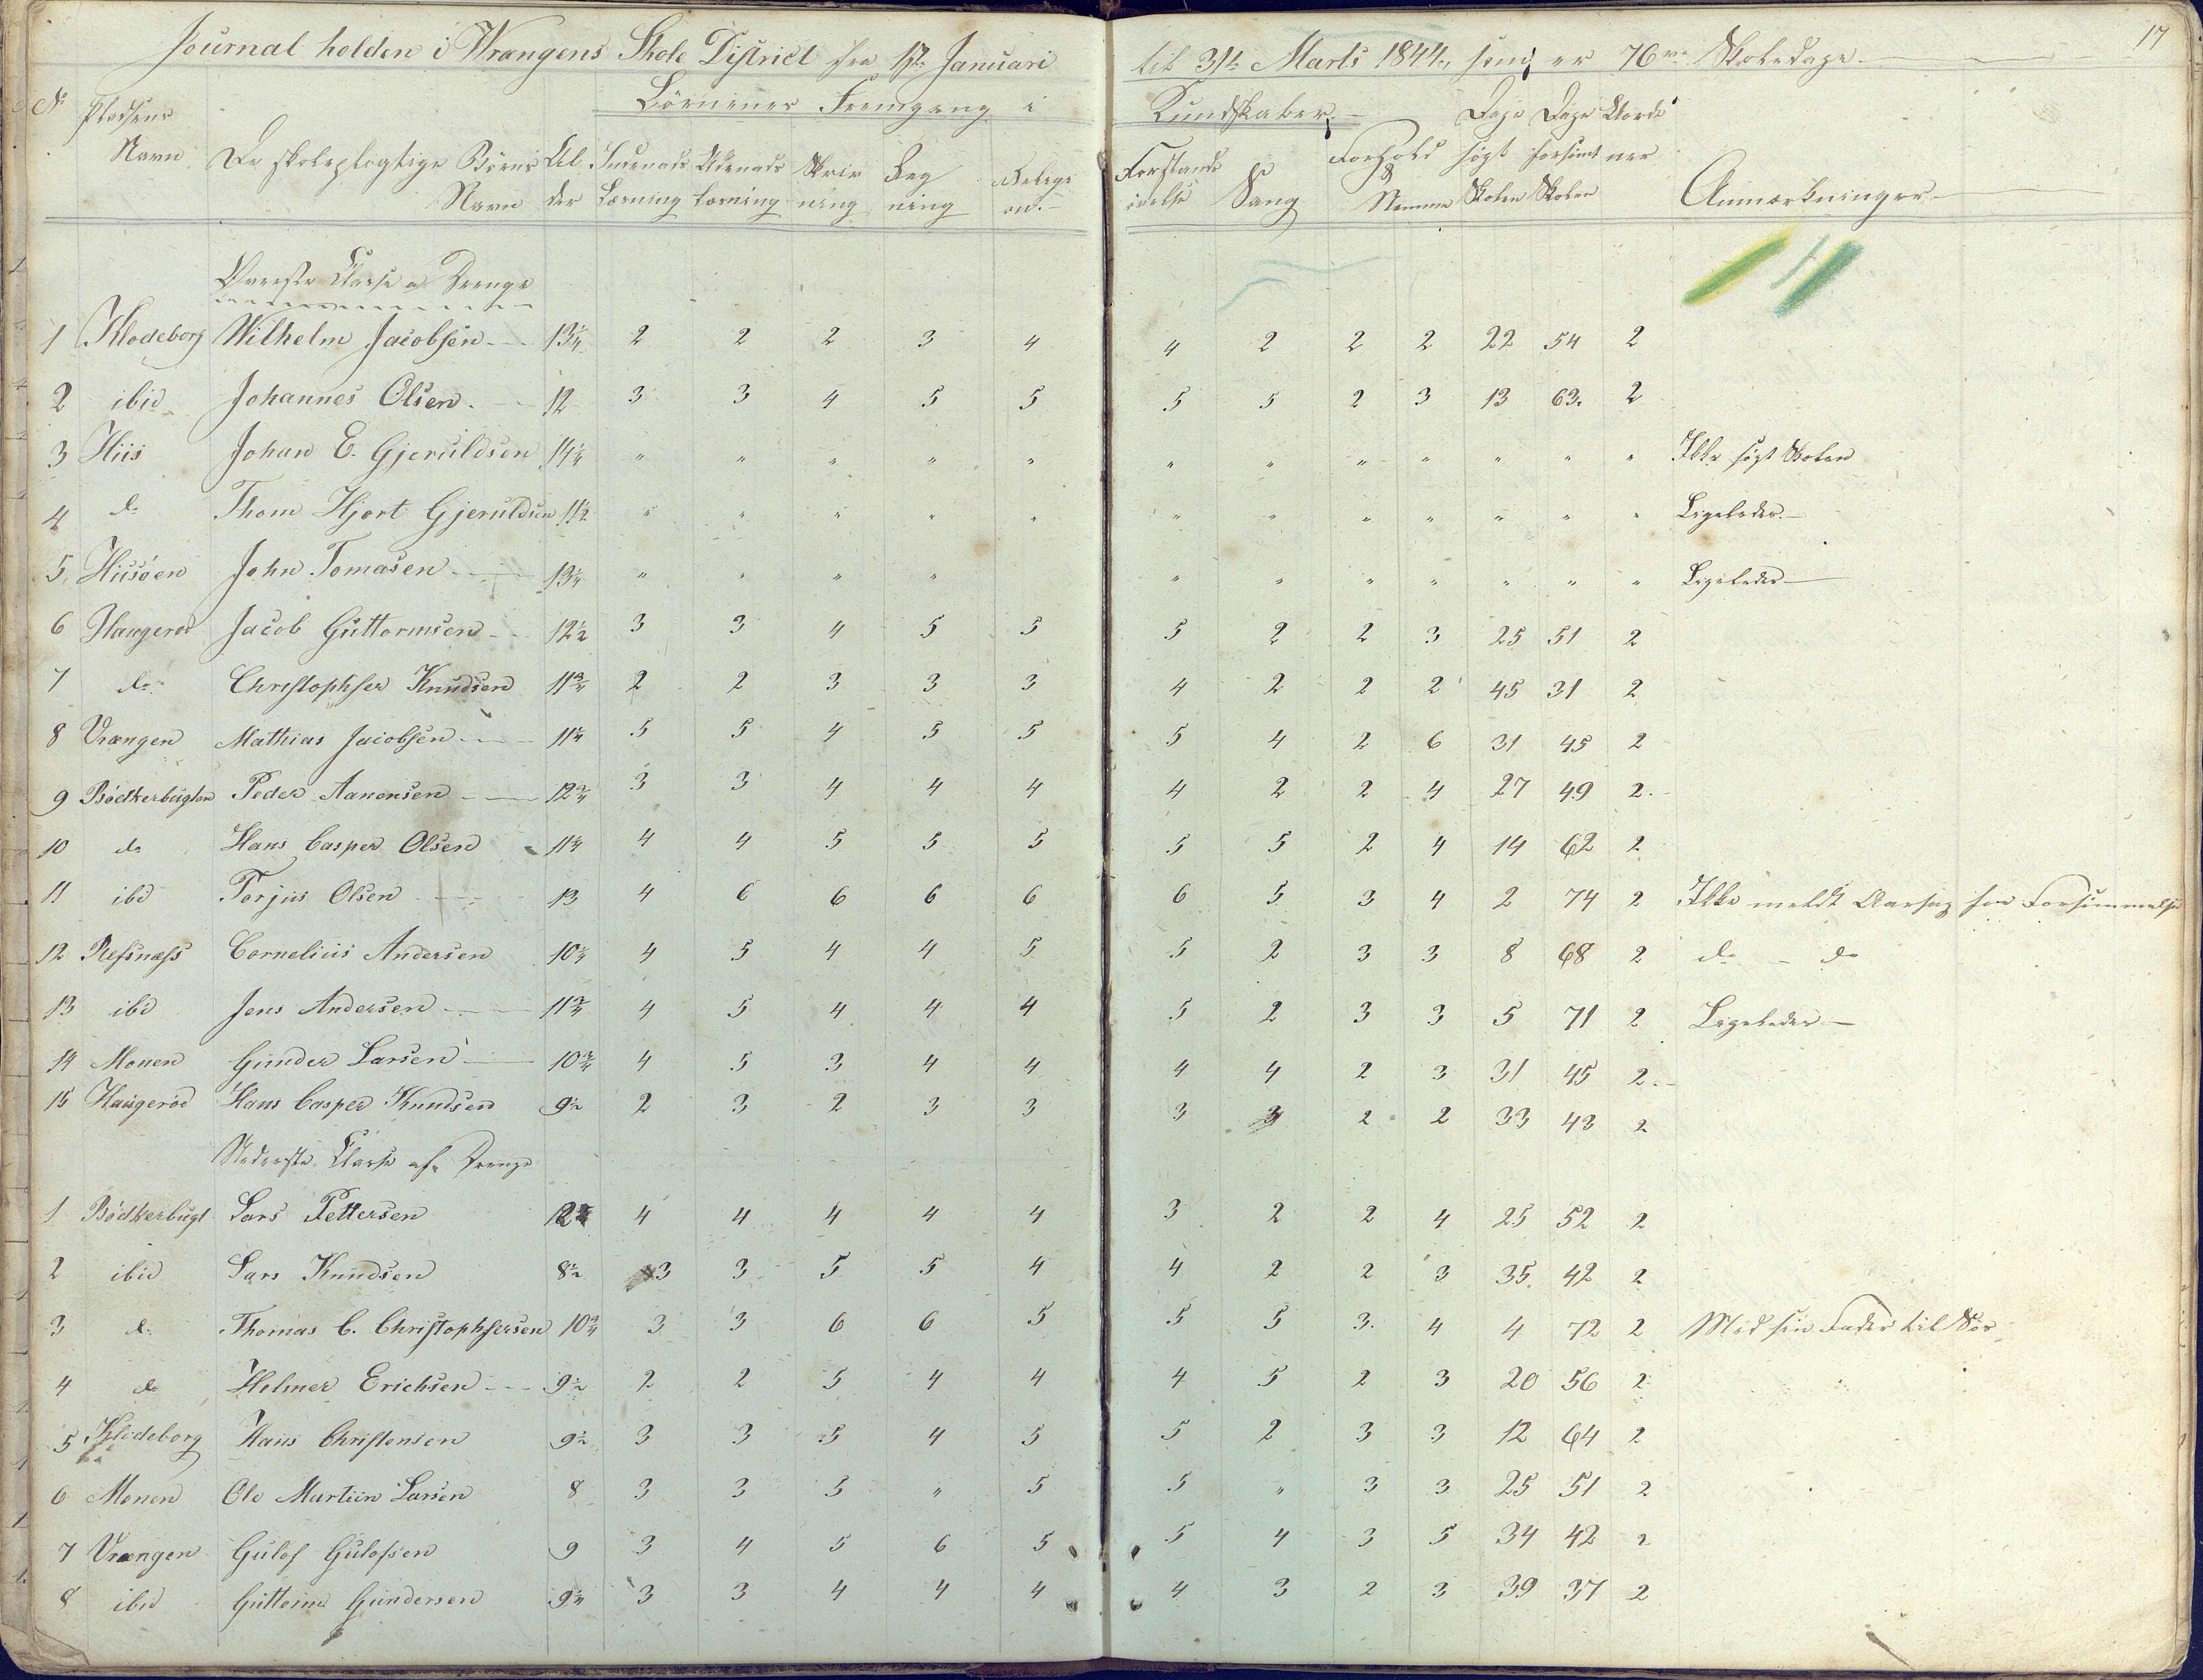 17
Journal holden i Wrangens Skole District fra 1ste Januari til 31te Marts 1844, som er 76 Skoledage
No Pladsens Navn De skolepligtige Børns Navn Alder Børnenes Fremgang i Kundskaber
Indenads Læsning Udenads Læsning Skrivning Regning Religion Forstands øvelse Sang Forhold & Nemme Dage søgt Skolen Dage forsømt Skolen Anmærkninger
Øverste Classe a Drenge
1 Klodeborg Wilhelm Jacobsen 13¼ 2 2 2 3 4 4 2 2 2 22 54 2
2 ibid Johannes Olsen 12 3 3 4 5 5 5 5 2 3 13 63 2
3 Hiis Johan E. Gjeruldsen 14¼ " " " " " " " " " " " " Ikke søgt Skolen
4 do Thom Hjort Gjeruldsen 11½ " " " " " " " " " " " " Ligeledes
5 Hiisøen John Tomasen 13¼ " " " " " " " " " " " Ligeledes
6 Haugerød Jacob Guttormsen 12½ 3 3 4 5 5 5 2 2 3 25 51 2
7 do Christophser Knudsen 11¾ 2 2 3 3 3 4 2 2 2 45 31 2
8 Vrængen Mathias Jacobsen 11¼ 5 5 4 5 5 5 4 2 6 31 45 2
9 Bødkerbugten Peder Aanonsen 12¾ 3 3 4 4 4 4 2 2 4 27 49 2
10 do Hans Casper Olsen 11¼ 4 4 5 5 5 5 5 2 4 14 62 2
11 ibd Torjus Olsen 13 4 6 6 6 6 6 5 3 4 2 74 2 Ikke meldt Aarsag for Forsømmelse
12 Refsnæss Cornelius Andersen 10¼ 4 5 4 4 5 5 2 3 3 8 68 2 do - do
13 ibd Jens Andersen 11¾ 4 5 4 4 4 5 2 3 3 5 71 2 Ligeledes
14 Monen Gunder Larsen 10¾ 4 5 3 4 4 4 4 2 3 31 45 2
15 Haugerød Hans Casper Knudsen 9½ 2 3 2 3 3 3 3 2 2 33 43 2
Nederste Classe af Drenge
1 Bødkerbugt Lars Pettersen 12 4 4 4 4 4 3 2 2 4 25 52 2
2 ibid Lars Knudsen 8½ 3 3 5 5 4 4 2 2 3 35 42 2
3 do Thomas C. Christophsersen 10¾ 3 3 6 6 5 5 5 3 4 4 72 2 Med sin Fader til Søs
4 do Helmer Erichsen 9½ 2 2 5 4 4 4 5 2 3 20 56 2
5 Klodeborg Hans Christensen 9½ 3 3 5 4 5 5 2 3 3 12 64 2
6 Monen Ole Martiin Larsen 8 3 3 5 " 5 5 " 3 3 25 51 2
7 Vrængen Gulof Gulofsen 9 3 4 5 6 5 5 4 3 5 34 42 2
8 ibid Guttorm Gundersen 9¼ 3 3 4 4 4 4 3 2 3 39 37 2